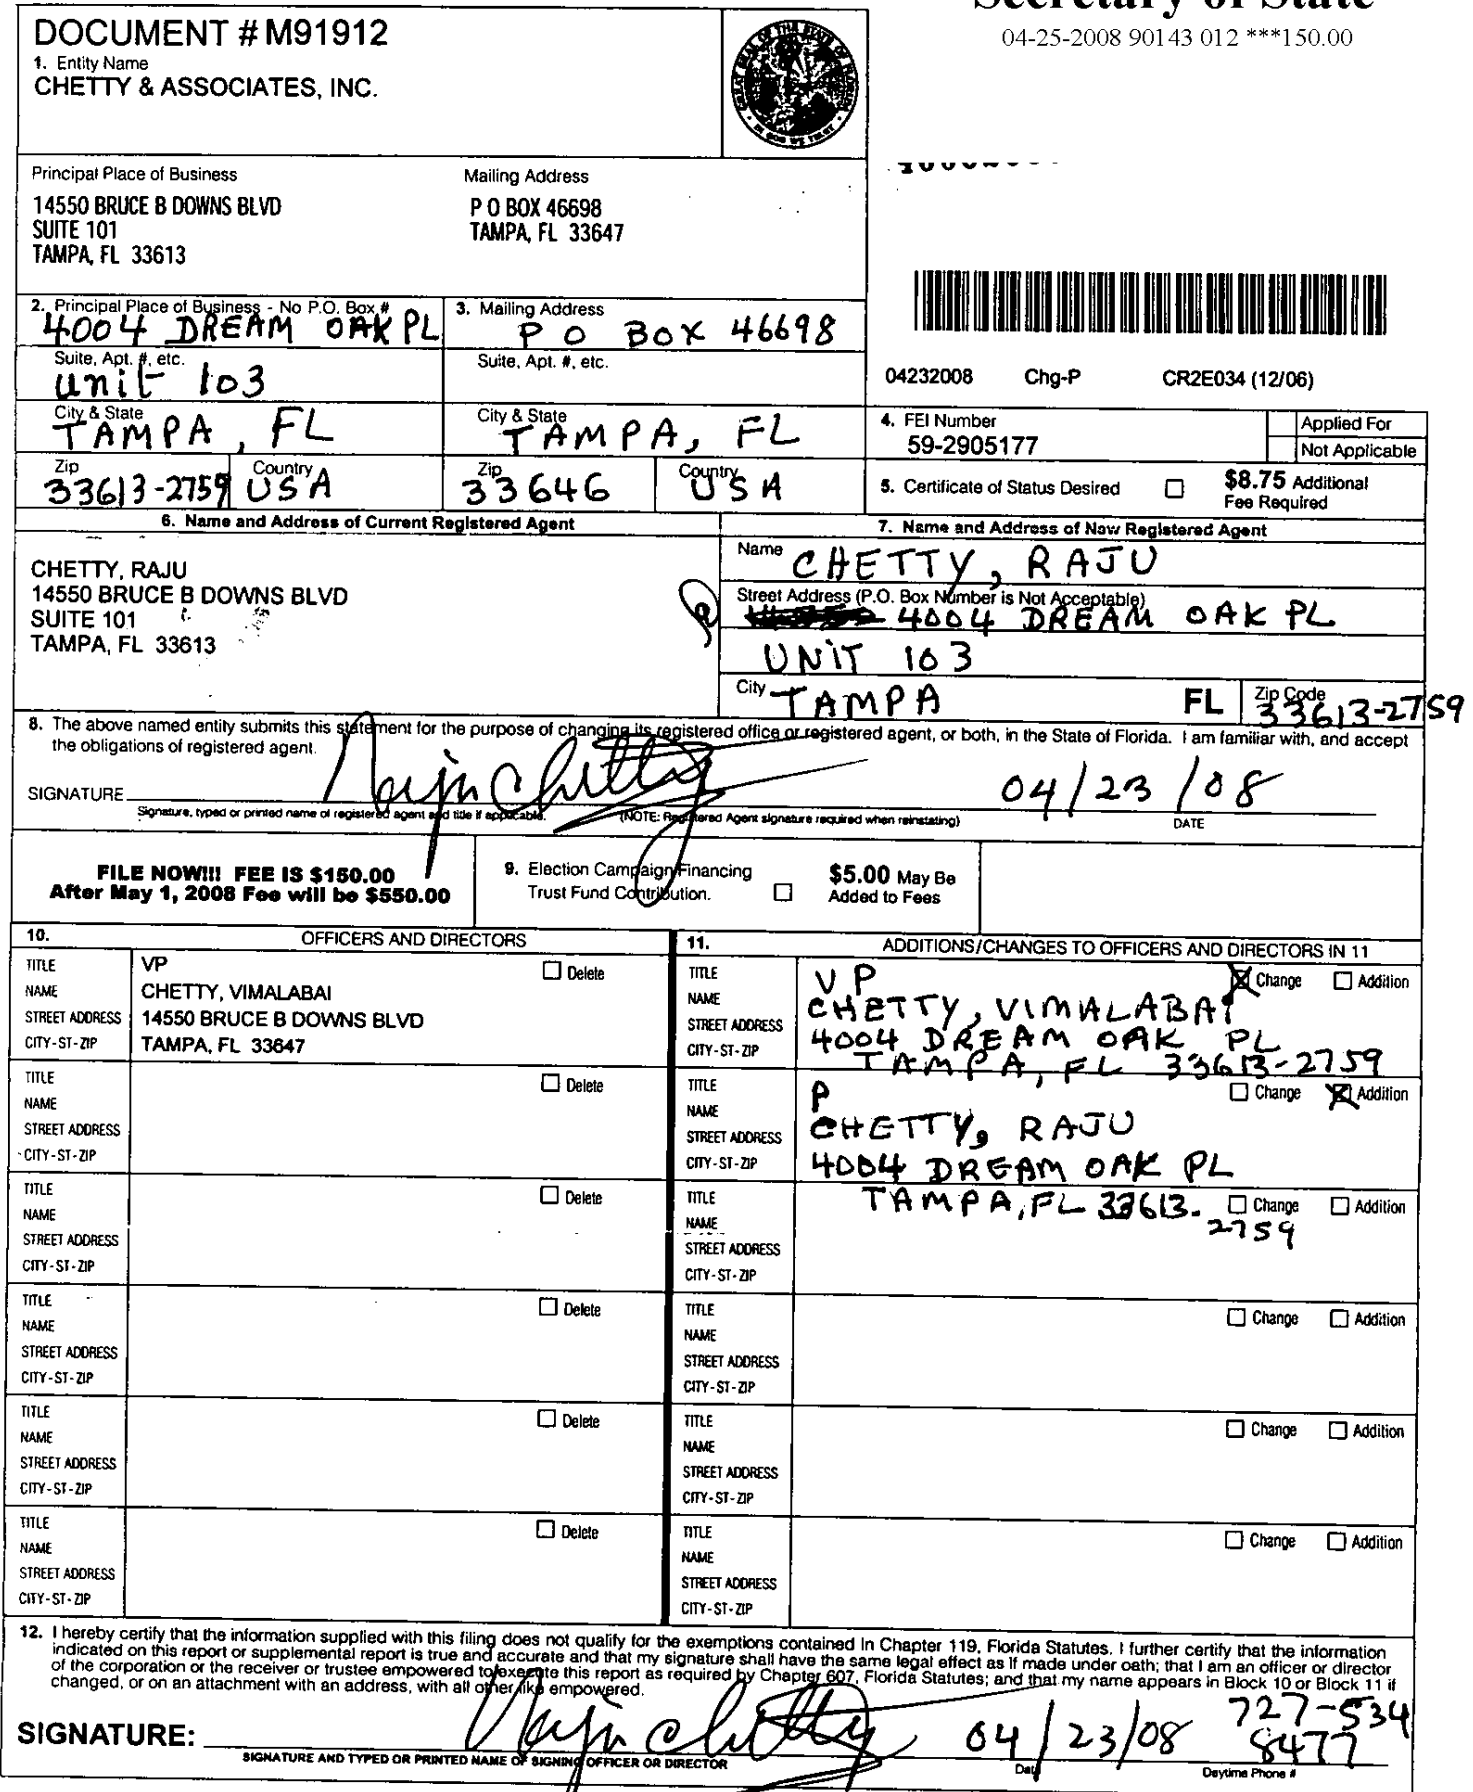 Secretary of State
04-25-2008 90143 012 ***150.00
DOCUMENT # M91912
1. Entity Name
CHETTY & ASSOCIATES, INC.
GREAT SEAL OF THE STATE OF FLORIDA
IN GOD WE TRUST
Principal Place of Business
14550 BRUCE B DOWNS BLVD
SUITE 101
TAMPA, FL 33613
Mailing Address
P O BOX 46698
TAMPA, FL 33647
2. Principal Place of Business - No P.O. Box #
4004 DREAM OAK PL
3. Mailing Address
P O BOX 46698
Suite, Apt. #, etc.
unit 103
Suite, Apt. #, etc.
City & State
TAMPA, FL
City & State
TAMPA, FL
Zip
33613-2759
Country
USA
Zip
33646
Country
USA
04232008 Chg-P CR2E034 (12/06)
4. FEI Number
59-2905177
Applied For
Not Applicable
5. Certificate of Status Desired
$8.75 Additional
Fee Required
6. Name and Address of Current Registered Agent
CHETTY, RAJU
14550 BRUCE B DOWNS BLVD
SUITE 101
TAMPA, FL 33613
7. Name and Address of New Registered Agent
Name
CHETTY, RAJU
Street Address (P.O. Box Number is Not Acceptable)
4004 DREAM OAK PL
UNIT 103
City
TAMPA
FL
Zip Code
33613-2759
8. The above named entity submits this statement for the purpose of changing its registered office or registered agent, or both, in the State of Florida. I am familiar with, and accept
the obligations of registered agent.
SIGNATURE Raju Chetty 04/23/08
Signature, typed or printed name of registered agent and title if applicable. (NOTE: Registered Agent signature required when reinstating) DATE
FILE NOW!!! FEE IS $150.00
After May 1, 2008 Fee will be $550.00
9. Election Campaign Financing
Trust Fund Contribution.
$5.00 May Be
Added to Fees
10. OFFICERS AND DIRECTORS
TITLE VP Delete
NAME CHETTY, VIMALABAI
STREET ADDRESS 14550 BRUCE B DOWNS BLVD
CITY-ST-ZIP TAMPA, FL 33647
TITLE Delete
NAME
STREET ADDRESS
CITY-ST-ZIP
TITLE Delete
NAME
STREET ADDRESS
CITY-ST-ZIP
TITLE Delete
NAME
STREET ADDRESS
CITY-ST-ZIP
TITLE Delete
NAME
STREET ADDRESS
CITY-ST-ZIP
TITLE Delete
NAME
STREET ADDRESS
CITY-ST-ZIP
11. ADDITIONS/CHANGES TO OFFICERS AND DIRECTORS IN 11
TITLE VP Change Addition
NAME CHETTY, VIMALABAI
STREET ADDRESS 4004 DREAM OAK PL
CITY-ST-ZIP TAMPA, FL 33613-2759
TITLE P Change Addition
NAME CHETTY, RAJU
STREET ADDRESS 4004 DREAM OAK PL
CITY-ST-ZIP TAMPA, FL 33613-
2759
TITLE Change Addition
NAME
STREET ADDRESS
CITY-ST-ZIP
TITLE Change Addition
NAME
STREET ADDRESS
CITY-ST-ZIP
TITLE Change Addition
NAME
STREET ADDRESS
CITY-ST-ZIP
TITLE Change Addition
NAME
STREET ADDRESS
CITY-ST-ZIP
12. I hereby certify that the information supplied with this filing does not qualify for the exemptions contained in Chapter 119, Florida Statutes. I further certify that the information
indicated on this report or supplemental report is true and accurate and that my signature shall have the same legal effect as if made under oath; that I am an officer or director
of the corporation or the receiver or trustee empowered to execute this report as required by Chapter 607, Florida Statutes; and that my name appears in Block 10 or Block 11 if
changed, or on an attachment with an address, with all other like empowered.
SIGNATURE: Raju Chetty 04/23/08 727-534
8477
SIGNATURE AND TYPED OR PRINTED NAME OF SIGNING OFFICER OR DIRECTOR Date Daytime Phone #